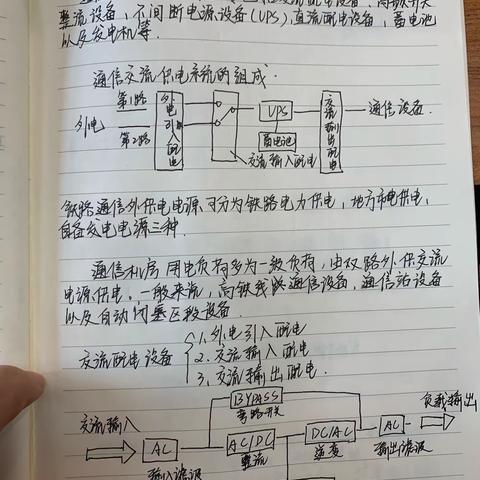 整流设备，不间断电源设备(UPS)，直流配电设备，蓄电池
以及发电机等．
通信交流供电系统的组成．
第1路
外电
第2路
外电引入配电
UPS
蓄电池
交流输入配电
交流输出配电
通信设备．
铁路通信外供电电源可分为铁路电力供电，地方市电供电，
自备发电电源三种．
通信机房用电负荷多为一级负荷，由双路外供交流
电源供电。一般来说，高铁我供通信设备，通信站设备
以及自动闭塞区段设备．
交流配电设备
1．外电引入配电
2．交流输入配电
3．交流输出配电．
BYPASS
旁路开关
交流输入
AC
输入滤波
AC/DC
整流
DC/AC
逆变
AC
输出滤波
负载输出